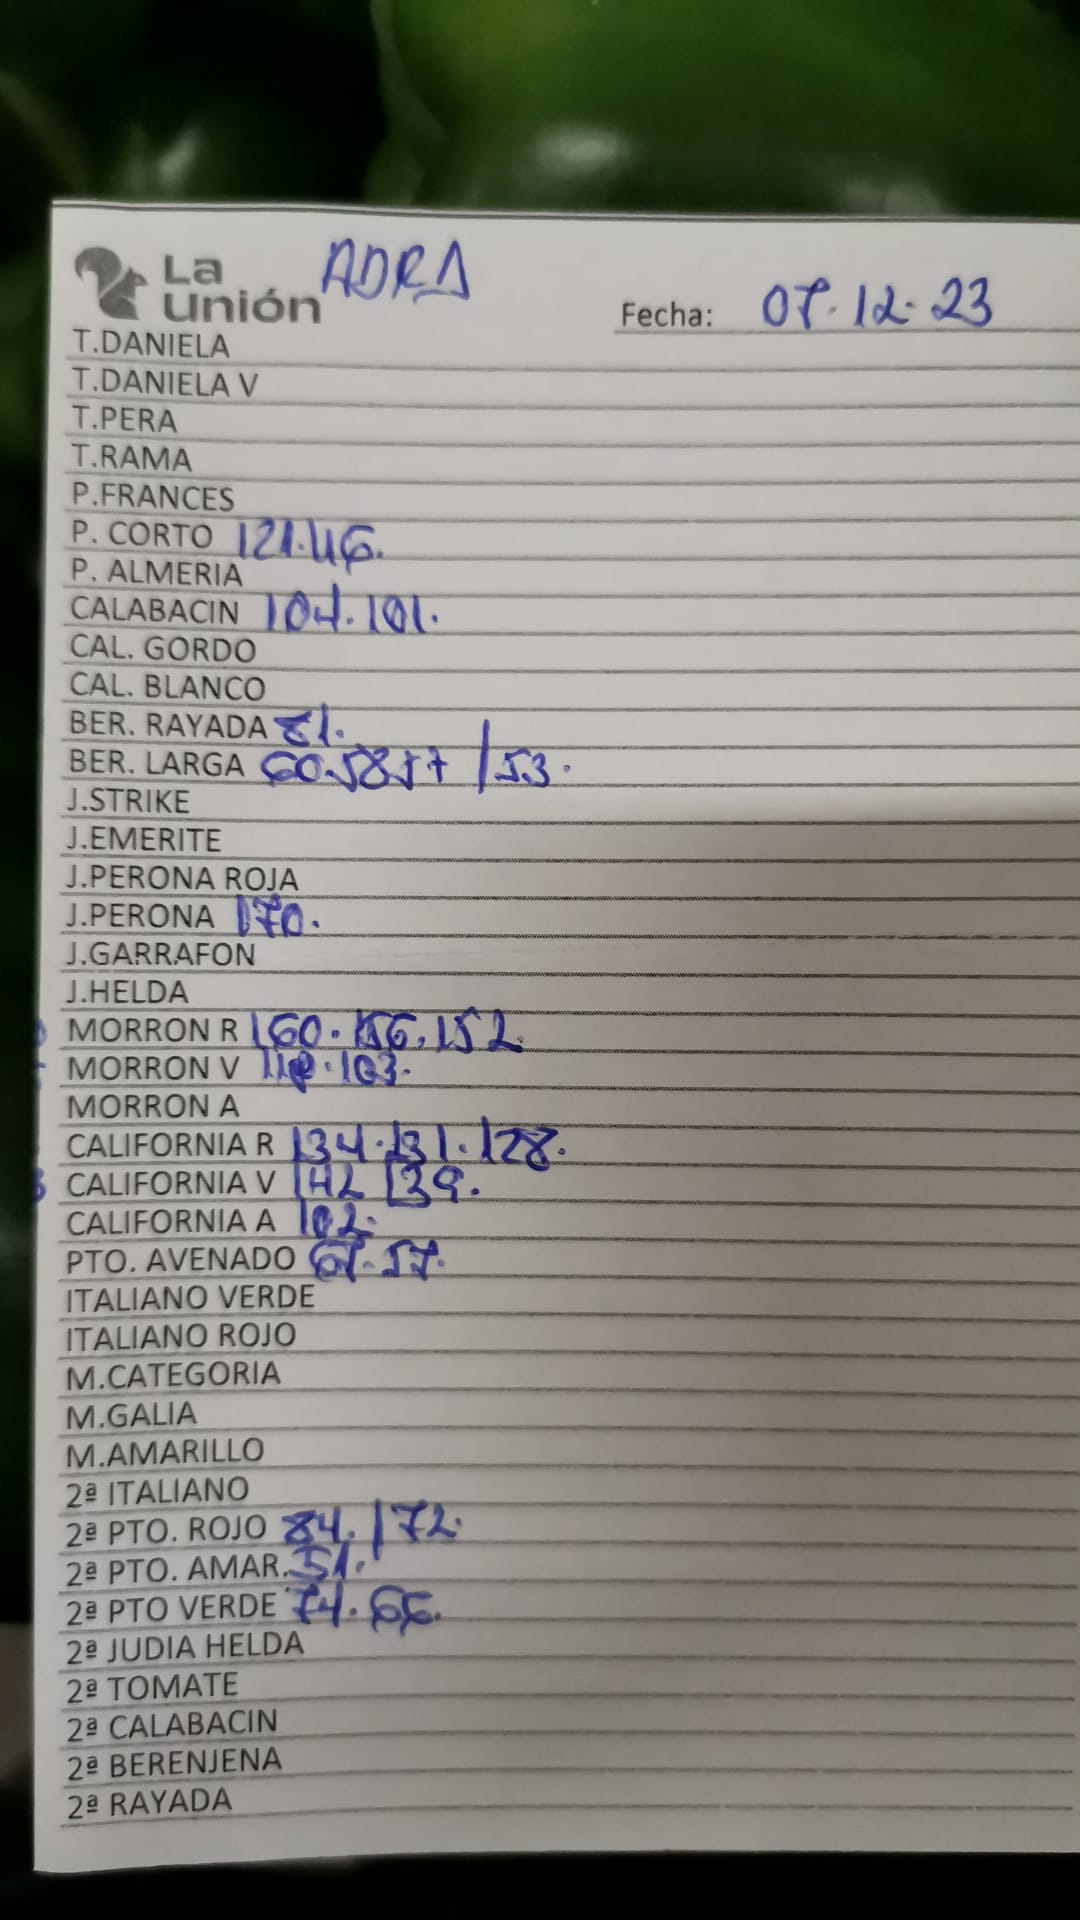 La Unión ADRA
Fecha: 07.12.23
T.DANIELA
T.DANIELA V
T.PERA
T.RAMA
P.FRANCES
P. CORTO 121.46.
P. ALMERIA
CALABACIN 104.101.
CAL. GORDO
CAL. BLANCO
BER. RAYADA 81.
BER. LARGA 60.58 57 / 53.
J.STRIKE
J.EMERITE
J.PERONA ROJA
J.PERONA 170.
J.GARRAFON
J.HELDA
MORRON R 160.156.152.
MORRON V 103.
MORRON A
CALIFORNIA R 134.131.128.
CALIFORNIA V 142 139.
CALIFORNIA A 102.
PTO. AVENADO 67.57.
ITALIANO VERDE
ITALIANO ROJO
M.CATEGORIA
M.GALIA
M.AMARILLO
2ª ITALIANO
2ª PTO. ROJO 84. / 72.
2ª PTO. AMAR. 51.
2ª PTO VERDE 74. 66.
2ª JUDIA HELDA
2ª TOMATE
2ª CALABACIN
2ª BERENJENA
2ª RAYADA